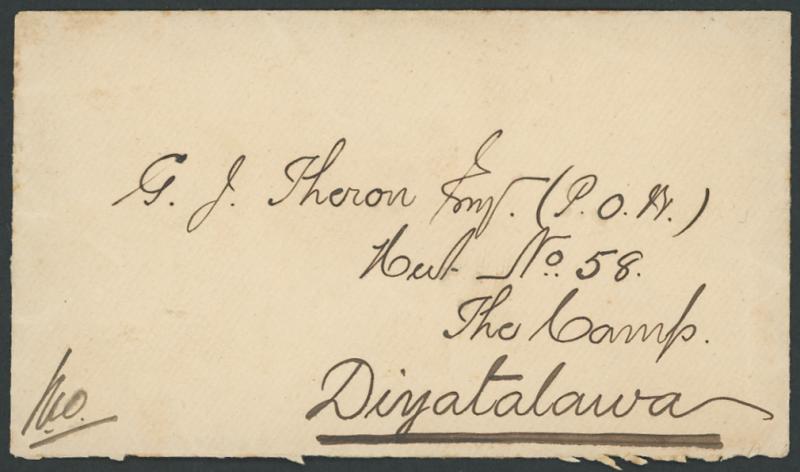 G. J. Theron Esq. (P.O.W.)
Hut No. 58.
The Camp.
Diyatalawa